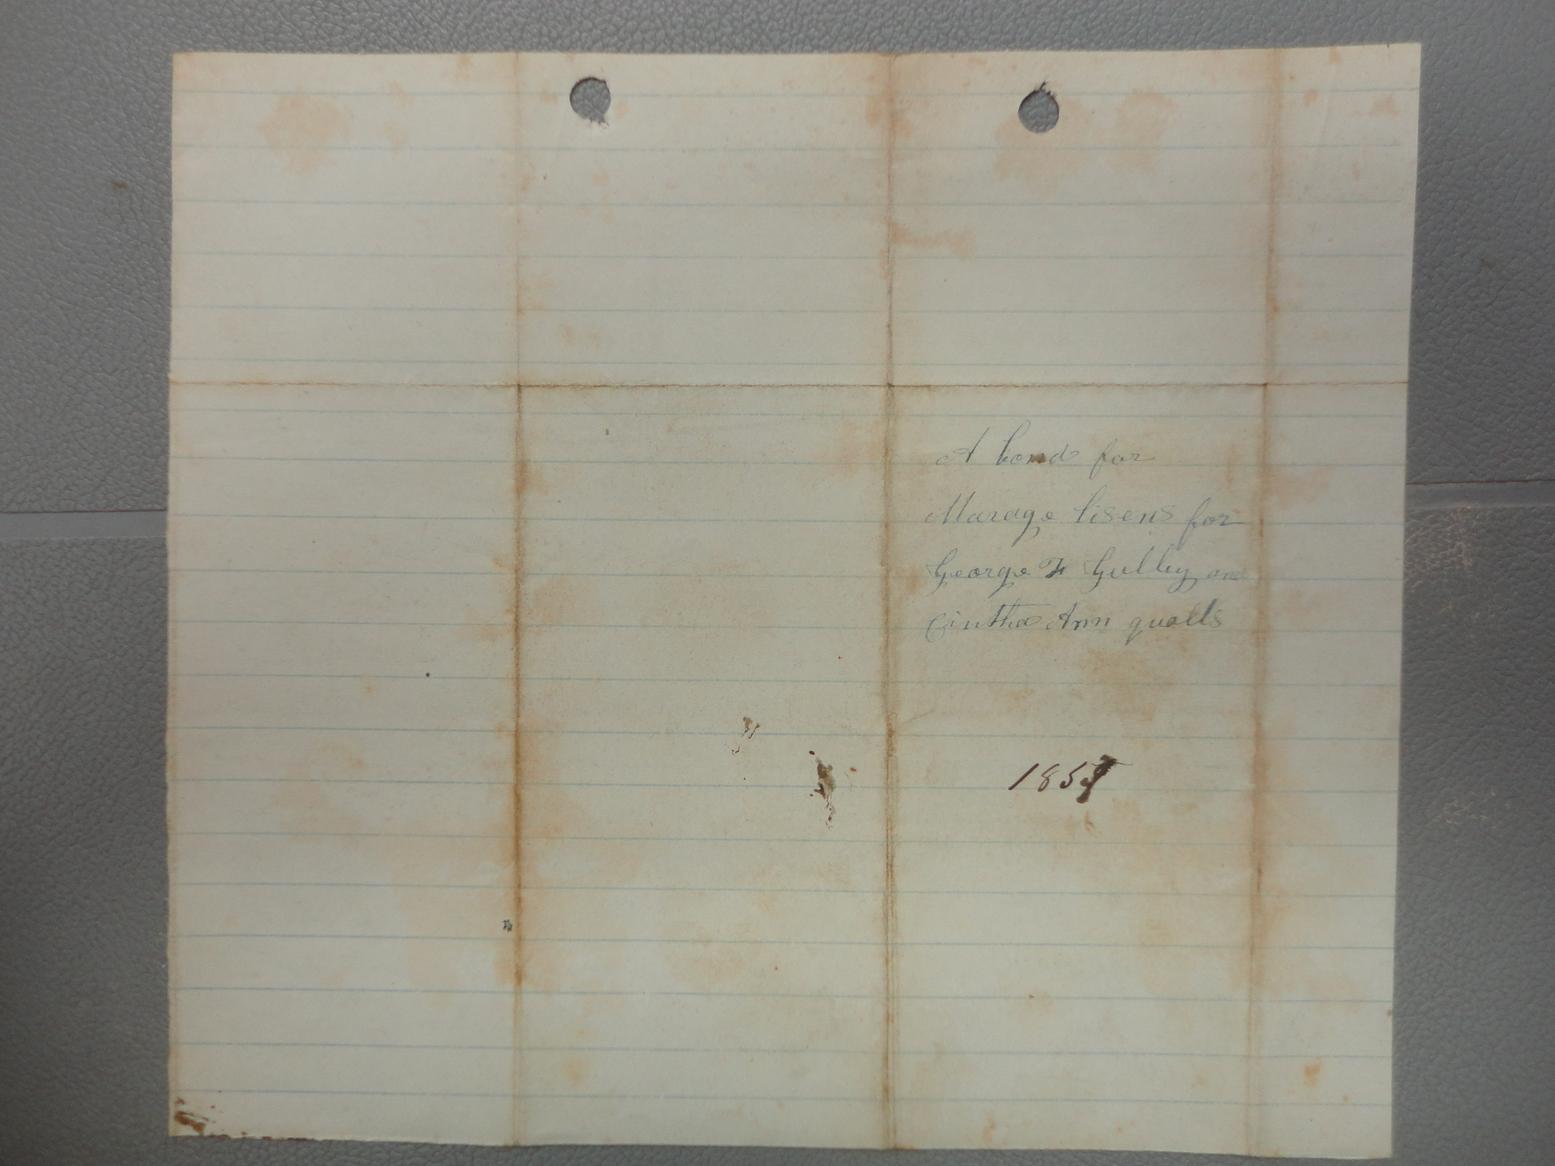 A bond for
Marage lisens for
George F Gulley and
Cintha Ann qualls